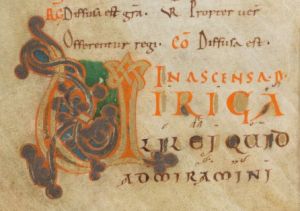 Diffusa est gra. Propter ver
Offerentur regi. CO Diffusa est.
IN ASCENSA D
VIRI GA
LILEI QUID
ADMIRAMINI